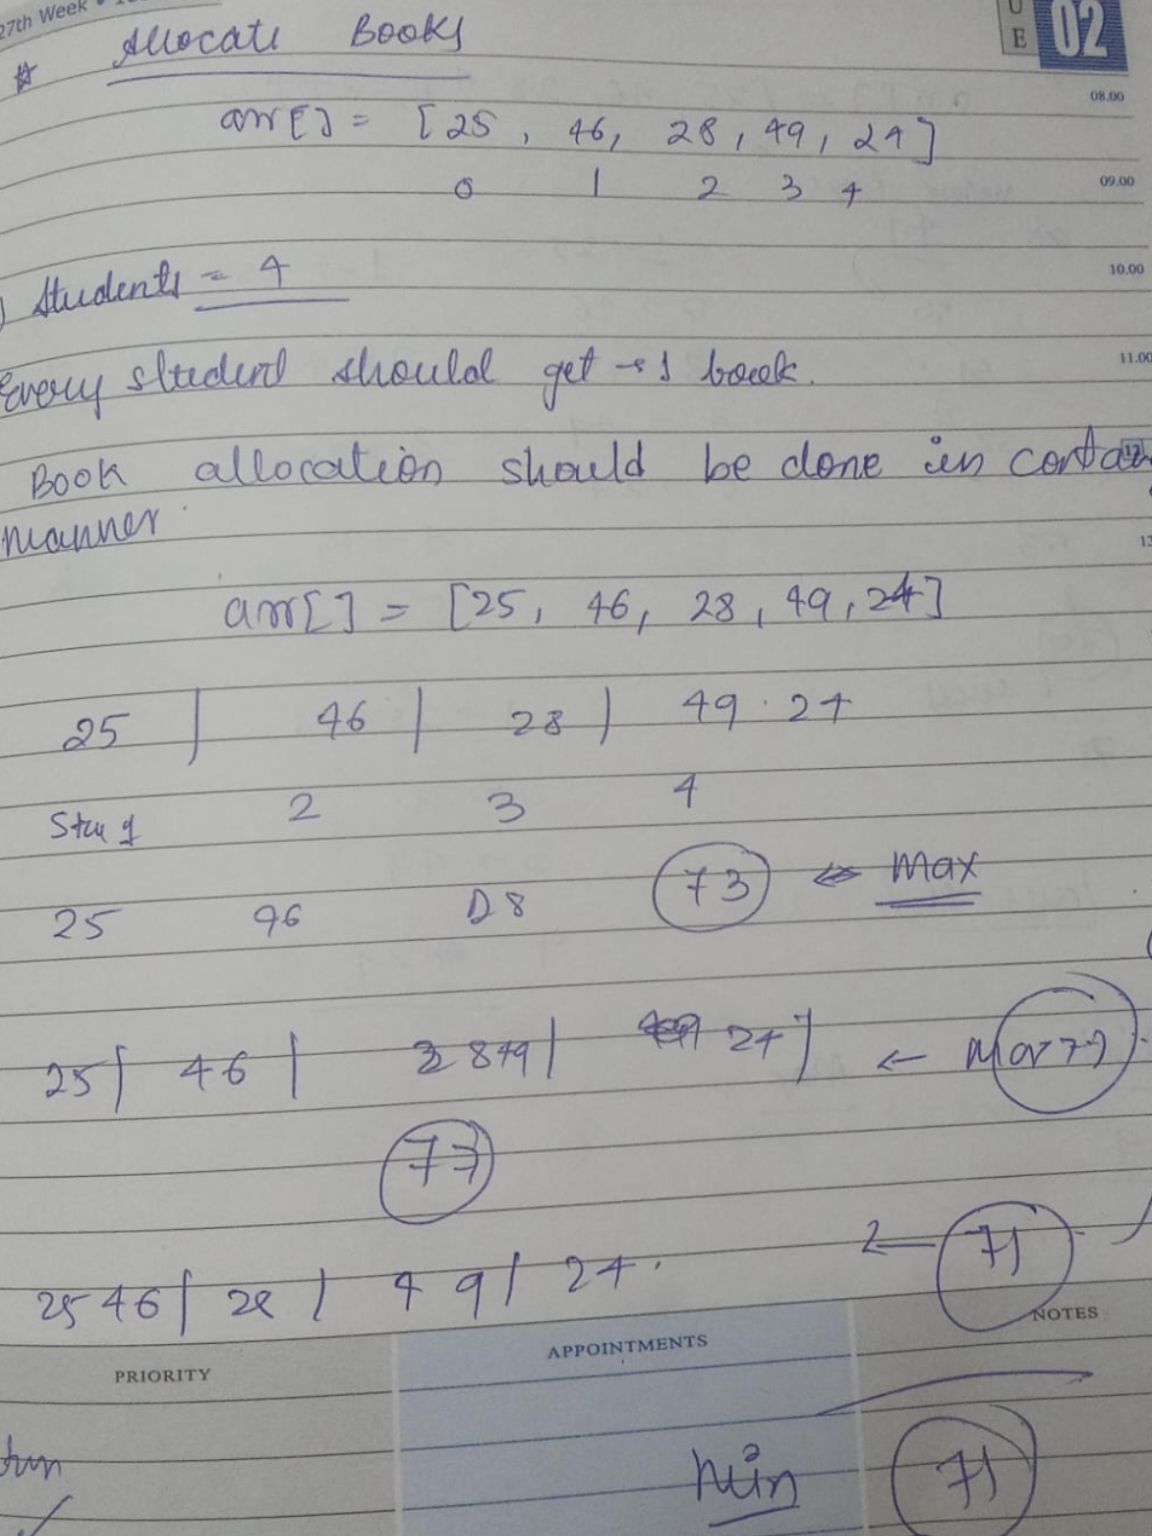 27th Week
UE 02
# Allocate Books
08.00
arr[] = [25, 46, 28, 49, 24]
0 1 2 3 4
09.00
Students = 4
10.00
Every student should get → 1 book.
11.00
Book allocation should be done in
manner
arr[] = [25, 46, 28, 49, 24]
25 | 46 | 28 | 49 24
2 3 4
25 46 28 73 ← Max
25 | 46 | 28 49 | 24 | ←
77
25 46 | 28 | 49 | 24. ← 71
NOTES
APPOINTMENTS
PRIORITY
Min 71